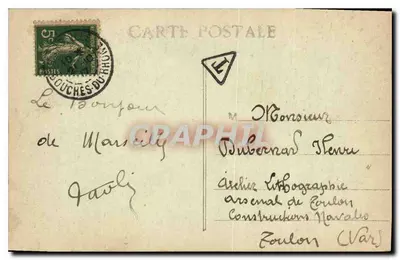 CARTE POSTALE
5
BOUCHES-DU-RHONE
T
Le Bonjour
de Marseille
Monsieur
Dubernard Henri
Atelier Lithographie
Arsenal de Toulon
Constructions Navales
Toulon (Var)
CPARAMA